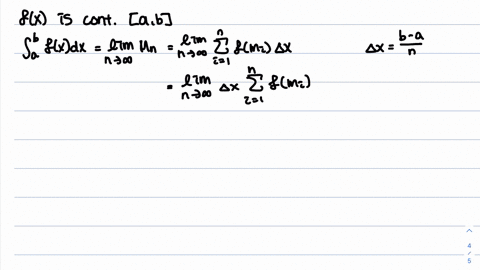 f(x) is cont. [a,b]
∫_a^b f(x)dx = lim_{n→∞} Mn = lim_{n→∞} Σ_{i=1}^n f(mi) Δx    Δx = (b-a)/n
= lim_{n→∞} Δx Σ_{i=1}^n f(mi)
4
/
5